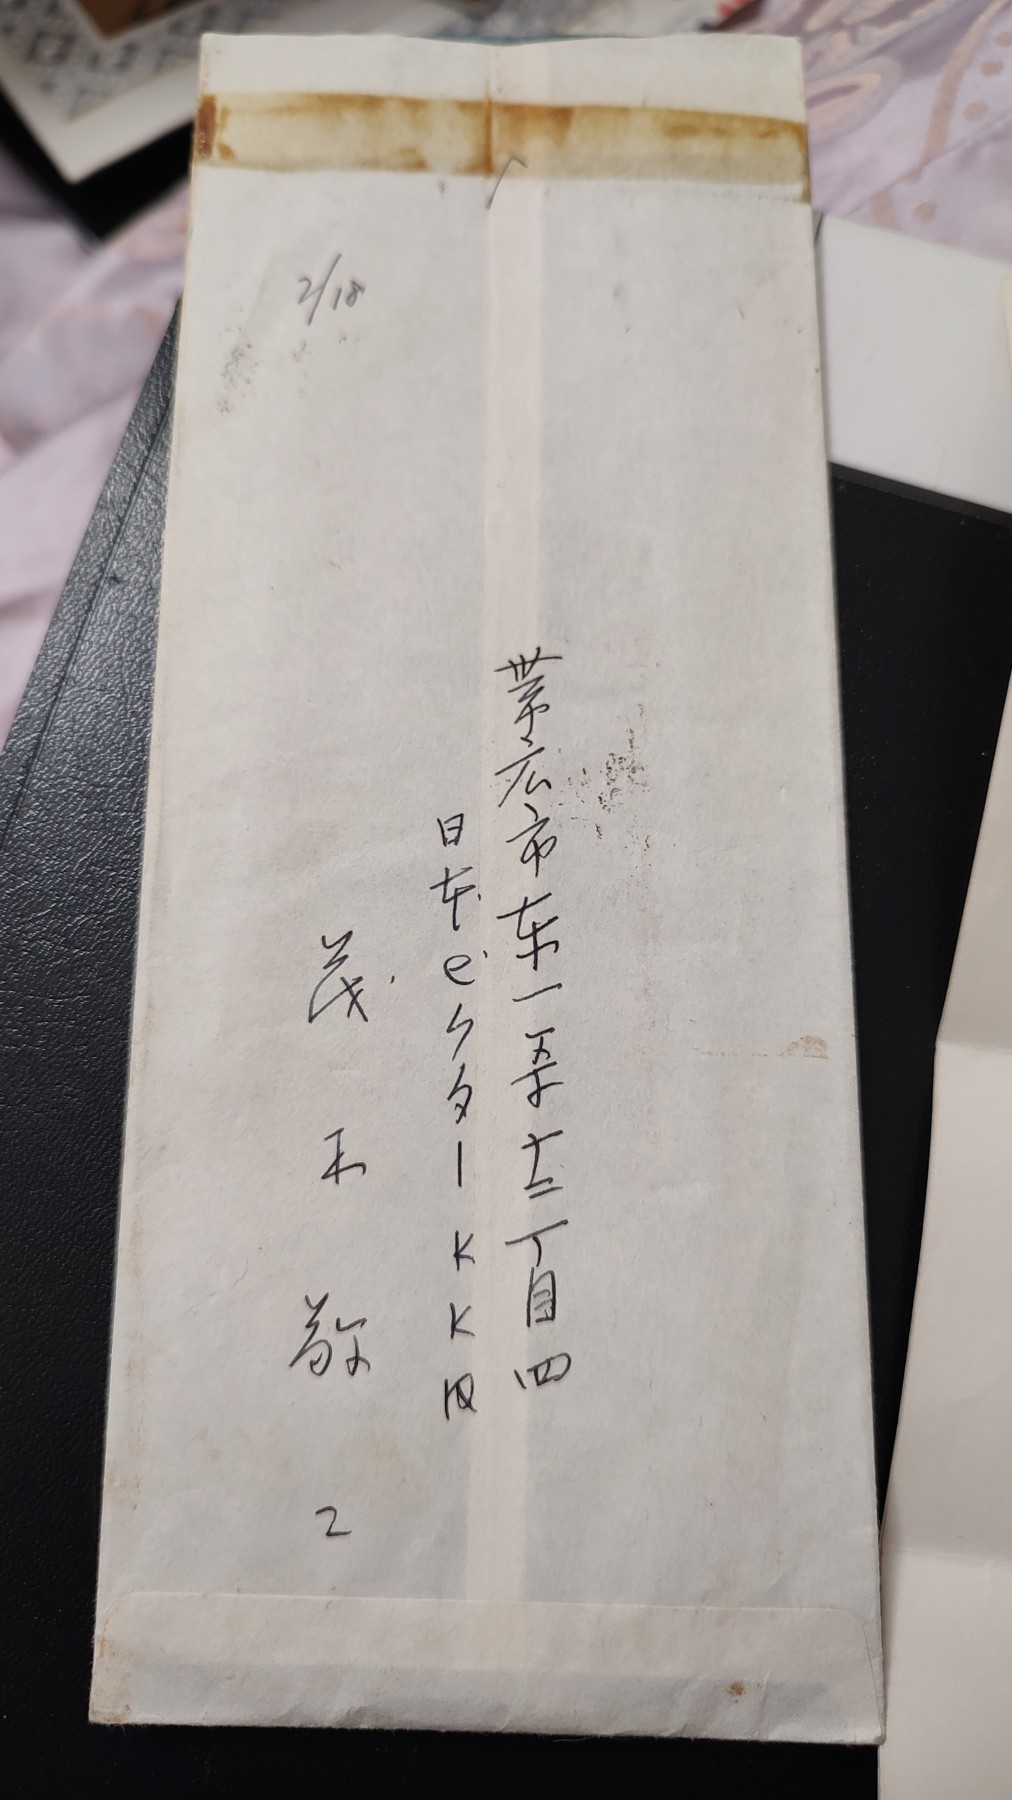 2/18
帯広市东一条十二丁目四
日本ビクターKK内
茂木敬